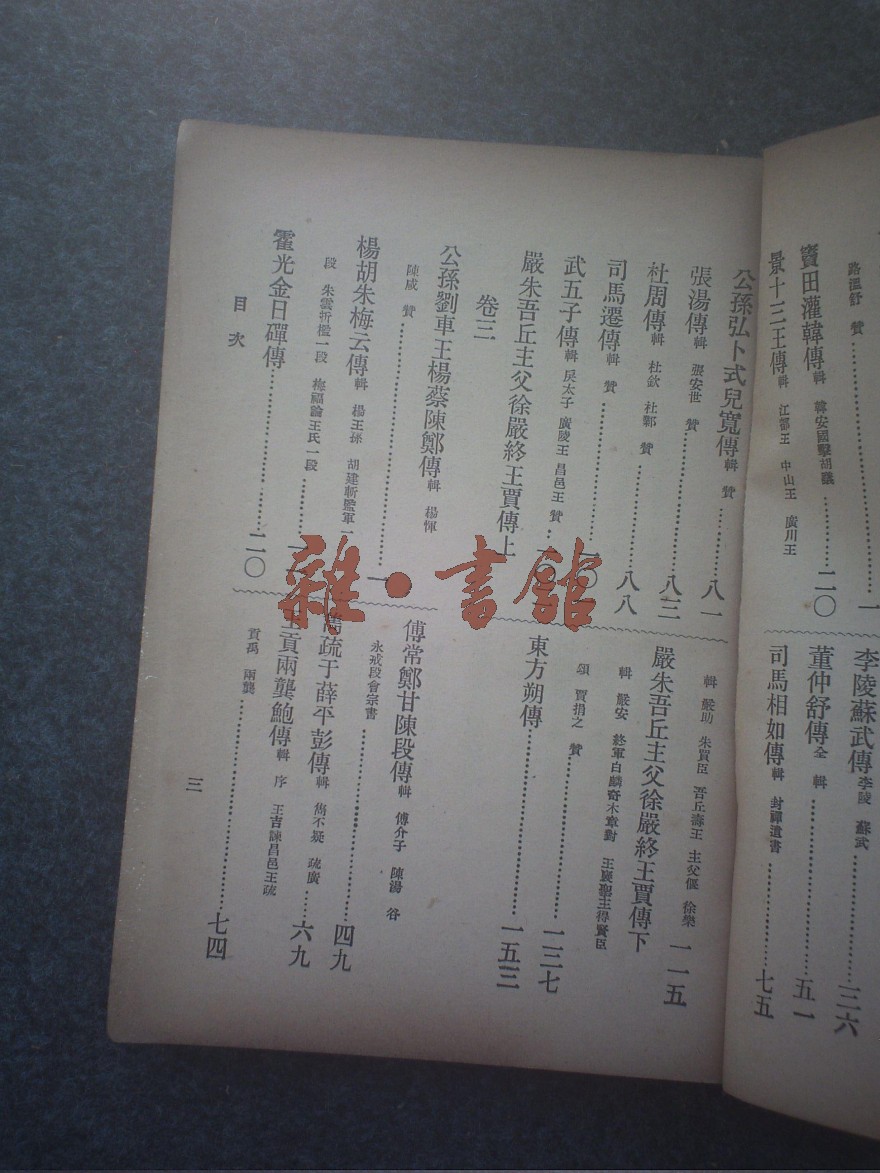 路溫舒 贊……一
竇田灌韓傳輯 韓安國擊胡議……二〇
景十三王傳輯 江都王 中山王 廣川王
李陵蘇武傳李陵 蘇武……三六
董仲舒傳全 輯……五一
司馬相如傳輯 封禪遺書……七五
公孫弘卜式兒寬傳輯 贊……八一
張湯傳輯 張安世 贊……八三
杜周傳輯 杜欽 杜鄴 贊……八八
司馬遷傳輯 贊……〇
武五子傳輯 戾太子 廣陵王 昌邑王 贊……
嚴朱吾丘主父徐嚴終王賈傳上
輯 嚴助 朱買臣 吾丘壽王 主父偃 徐樂
一一五
嚴朱吾丘主父徐嚴終王賈傳下
輯 嚴安 終軍白麟奇木對 王褒聖主得賢臣
頌 賈捐之 贊……一三七
東方朔傳……一五三
卷三
公孫劉車王楊蔡陳鄭傳輯 楊惲
陳咸 贊……一
楊胡朱梅云傳輯 楊王孫 胡建斬監軍一
段 朱雲折檻一段 梅福論王氏一段……
霍光金日磾傳……二〇
傅常鄭甘陳段傳輯 傅介子 陳湯 谷
永戒段會宗書……四九
雋疏于薛平彭傳輯 雋不疑 疏廣……六九
王貢兩龔鮑傳輯 序 王吉諫昌邑王疏
貢禹 兩龔……七四
目次
三
雜·書館